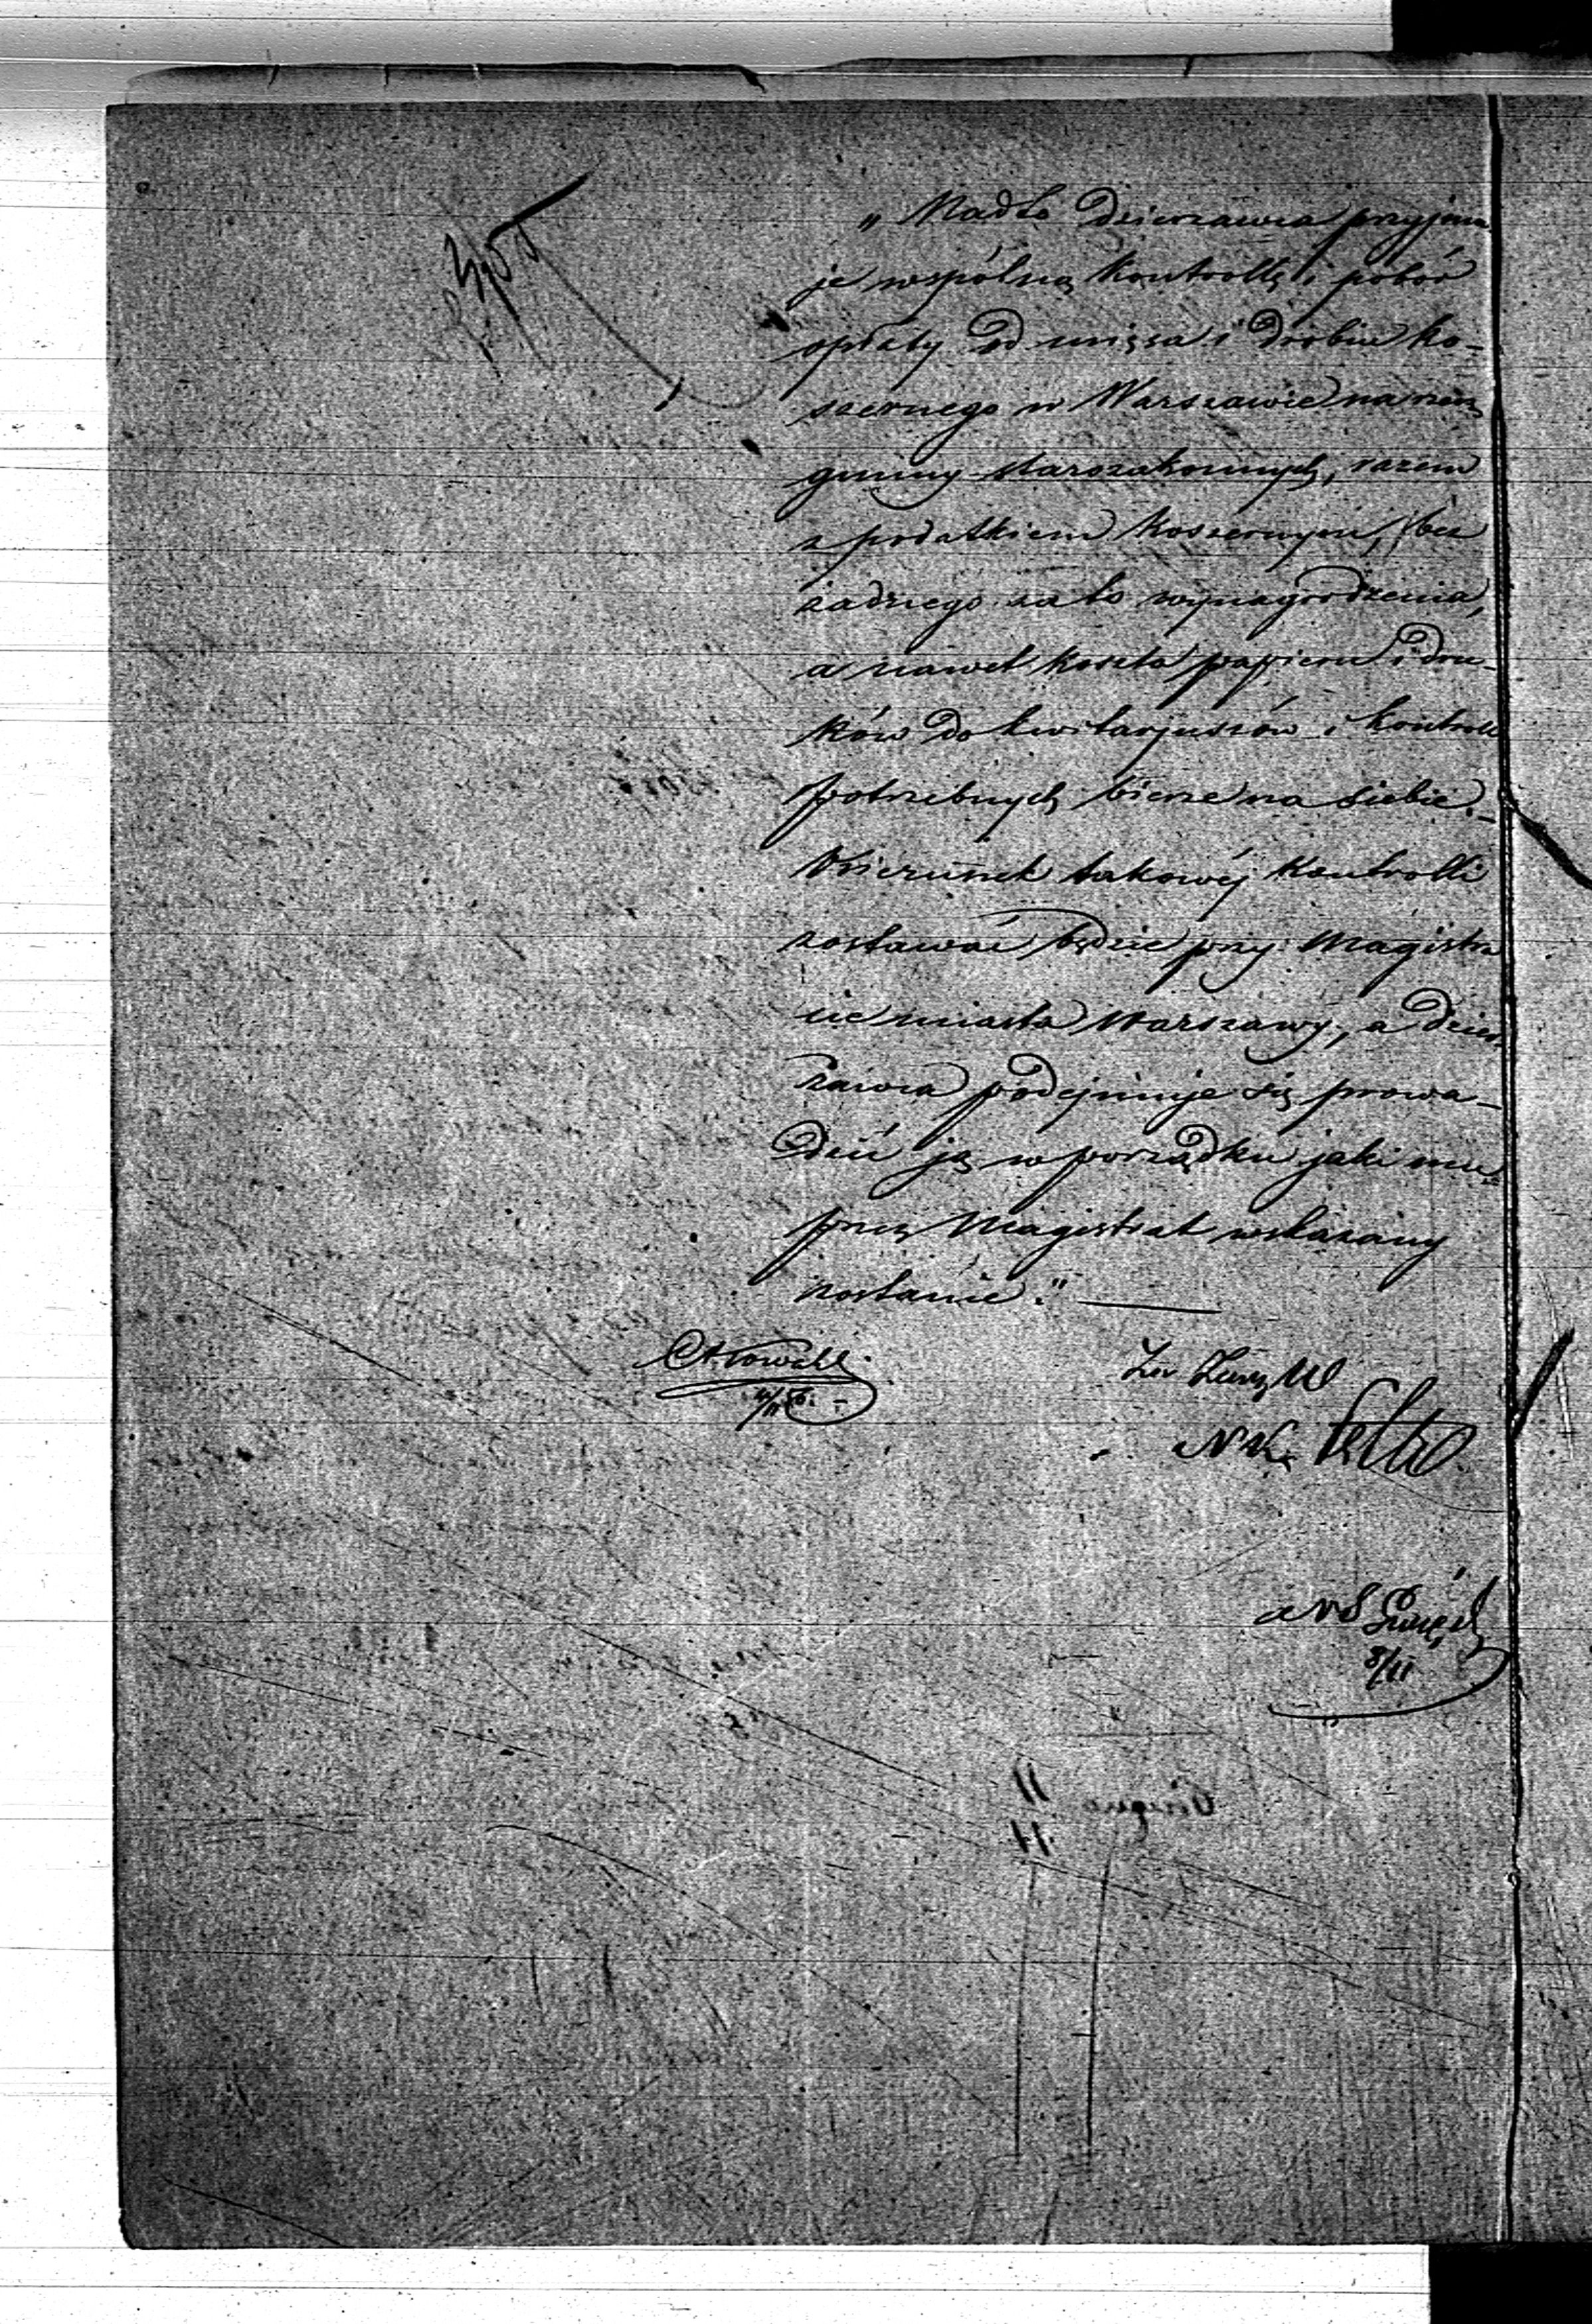 „Nadto Dzierzawca przyjmu
je wspólną Kontrollę i pobór
opłaty od mięsa i drobiu ko-
szernego w Warszawie na rzecz
gminy starozakonnych, razem
z podatkiem koszernym, bez
żadnego za to wynagrodzenia,
a nawet koszta papieru i dru-
ków do kwitarjuszów i kontroll
potrzebnych bierze na siebie.-
Kierunek takowéj Kontrolli
zostawać będzie przy Magistra
cie miasta Warszawy, a dzier-
żawca podejmuje się prowa-
dzić ją w porządku jaki mu
przez Magistrat wskazany
zostanie."
8/11